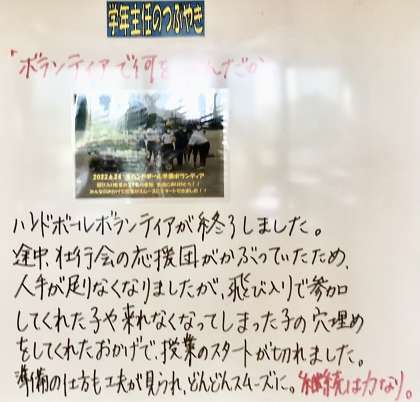 学年主任のつぶやき
「ボランティアで何を
だか
2022.6.24
ハンドボール準備ボランティア
ハンドボールボランティアが終了しました。
途中、壮行会の応援団がかぶっていたため、
人手が足りなくなりましたが、飛び入りで参加
してくれた子や来れなくなってしまった子の穴埋め
をしてくれたおかげで、授業のスタートが切れました。
準備の仕方も工夫が見られ、どんどんスムーズに。継続は力なり。